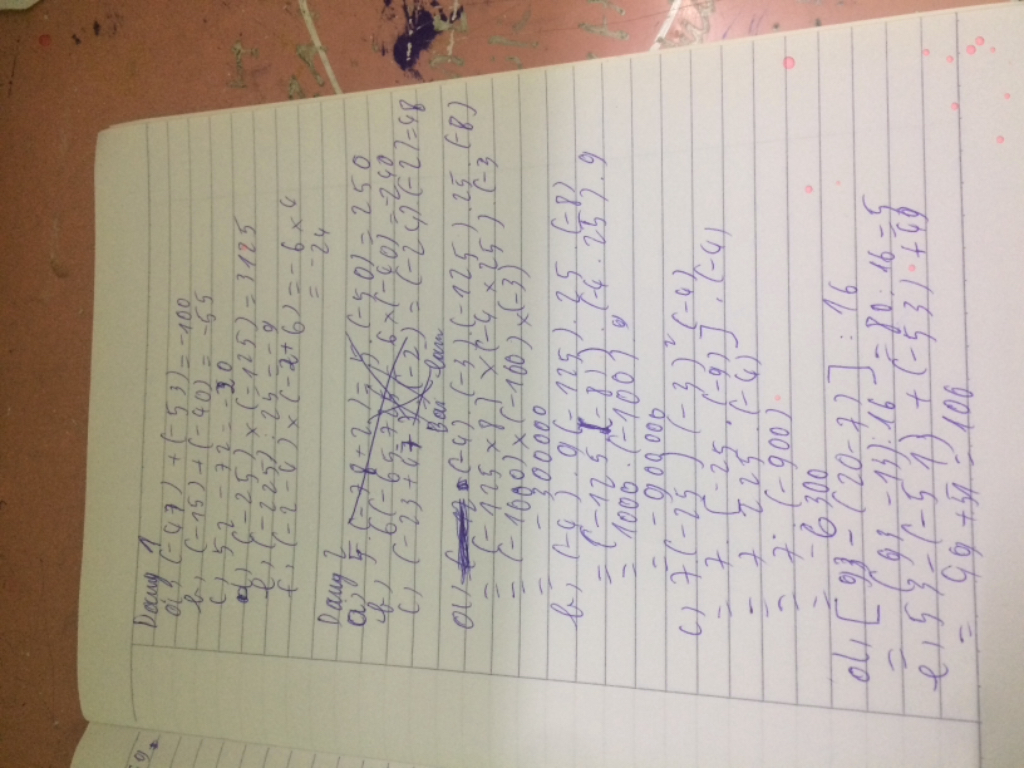 Dạng 1
a) (-47) + (-53) = -100
b, (-15) + (-40) = -55
c, 52 - 72 = -20
d, (-25) × (-125) = 3125
e, (-225) : 25 = -9
f, (-2-4) × (-2+6) = -6 × 4
= -24
Dạng 2
a,
b,
c, (-23+47
= (-24) (-2) = 48
Bài làm
a) (-4). (-3) (-125). 25. (-8)
= (-125 × 8] × (-4 × 25). (-3
= (-1000) × (-100) × (-3)
= -300000
b, (-4). 9 (-125). 25 (-8)
= (-125 (-8)). (-4. 25). 9
= 1000. (-100). 9
= -900000
c) 7 (-25) (-3)² (-4)
= 7. [-25. (-9)]. (-4)
= 7 525. (-4)
= 7. (-900)
= -6300
d, [93 - (20-7)] : 16
= [93 - 13) : 16 = 80 : 16 = 5
e, 53 - (-51) + (-53) + 49
= 49 + 51 = 100